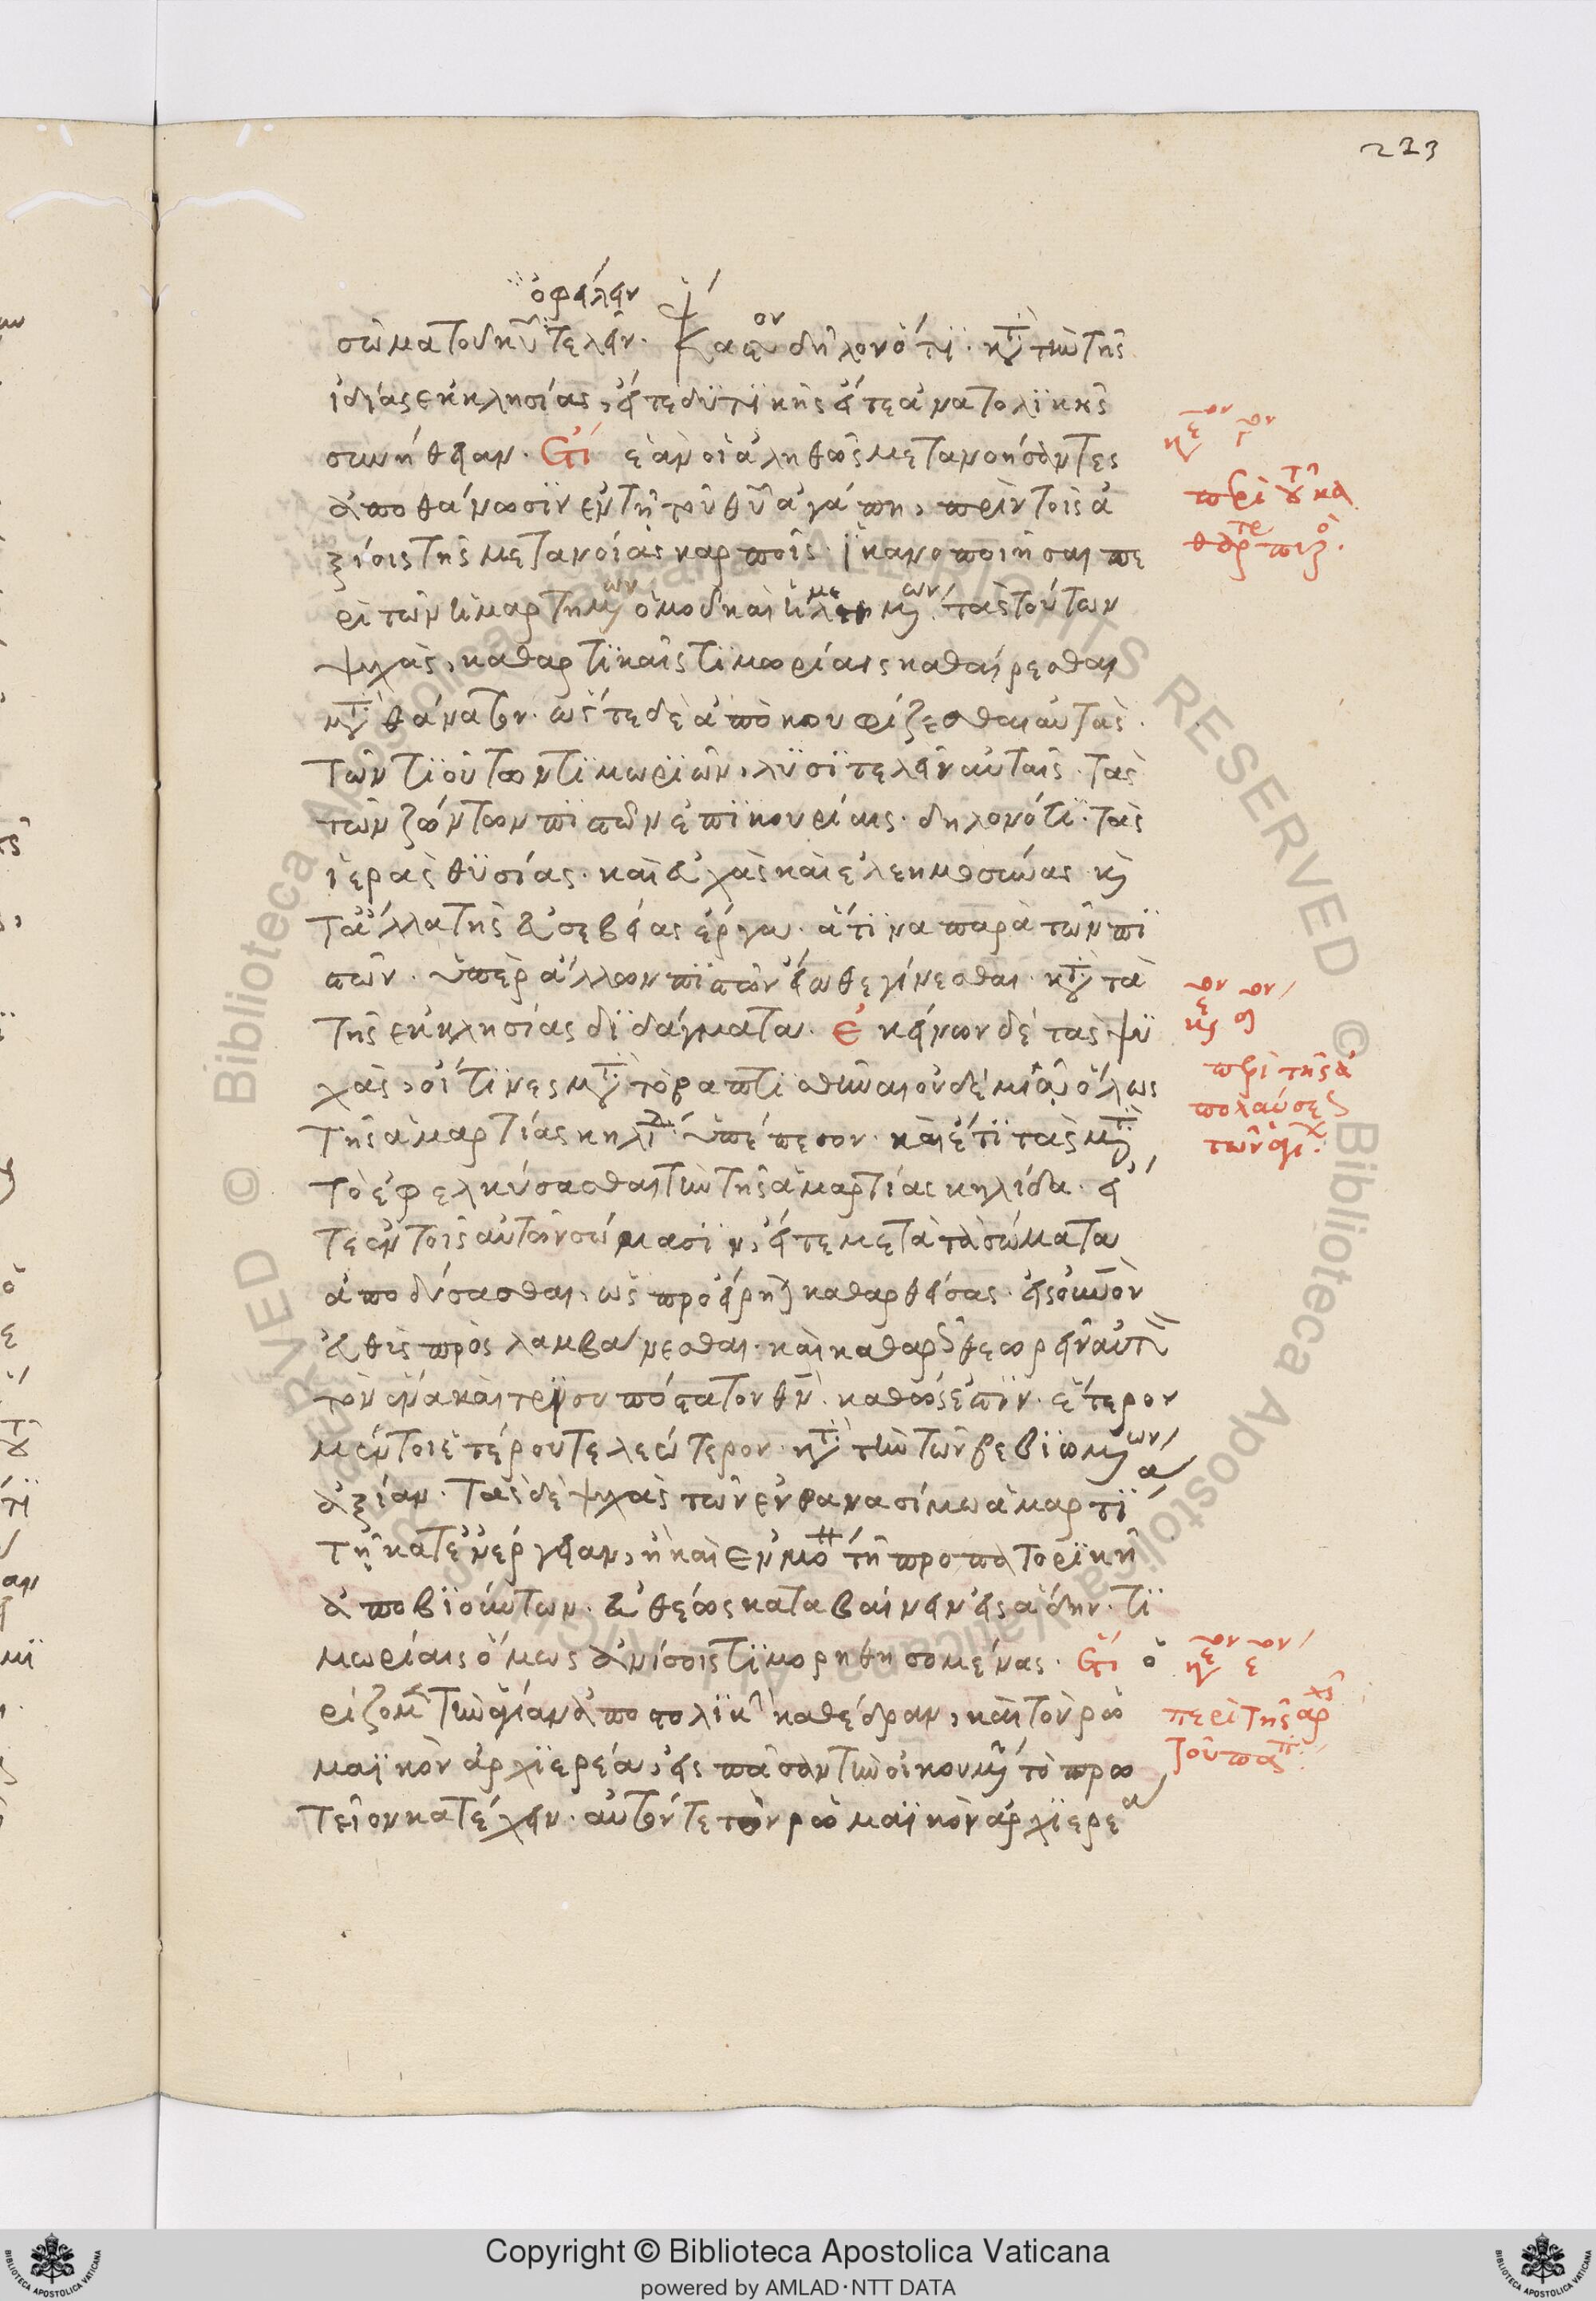 223
ὀφείλειν
σῶμα τοῦ κυ τελεῖν. ἕκαστον δηλονότι. κατὰ τὴν τῆς
ἰδίας ἐκκλησίας, εἴτε δυτικῆς εἴτε ἀνατολικῆς
συνήθειαν. Ἔτι ἐὰν οἱ ἀληθῶς μετανοήσαντες
ἀποθάνωσιν ἐν τῇ τοῦ θυ ἀγάπῃ, πρὶν τοῖς ἀ
ξίοις τῆς μετανοίας καρποῖς ἱκανοποιῆσαι πε
ρὶ τῶν ἡμαρτημένων ὁμοῦ καὶ ἠμελημένων, τὰς τούτων
ψυχὰς, καθαρτικαῖς τιμωρίαις καθαίρεσθαι
μετὰ θάνατον. ὥστε δὲ ἀποκουφίζεσθαι αὐτὰς
τῶν τοιούτων τιμωριῶν, λυσιτελεῖν αὐταῖς τὰς
τῶν ζώντων πιστῶν ἐπικουρίας. δηλονότι τὰς
ἱερὰς θυσίας. καὶ εὐχὰς καὶ ἐλεημοσύνας καὶ
τἄλλα τῆς εὐσεβείας ἔργα. ἅτινα παρὰ τῶν πι
στῶν. ὑπὲρ ἄλλων πιστῶν εἴωθε γίνεσθαι. κατὰ τὰ
τῆς ἐκκλησίας διδάγματα. Ἐκείνων δὲ τὰς ψυ
χὰς, οἵτινες μετὰ τὸ βαπτισθῆναι οὐδεμιᾷ ὅλως
τῆς ἁμαρτίας κηλίδι ὑπέπεσον. καὶ ἔτι τὰς μετὰ
τὸ ἐφελκύσασθαι τὴν τῆς ἁμαρτίας κηλίδα. εἴ
τε ἐν τοῖς αὐτῶν σώμασιν, εἴτε μετὰ τὰ σώματα
ἀποδύσασθαι, ὡς προείρηται καθαρθείσας. εἰς οὐνὸν
εὐθὺς προσλαμβάνεσθαι. καὶ καθαρῶς θεωρεῖν αὐτὸν
τὸν ἕνα καὶ τρισυπόστατον θν. καθώς ἐστιν. ἕτερον
μέντοι ἑτέρου τελεώτερον. κατὰ τὴν τῶν βεβιωμένων
ἀξίαν. Τὰς δὲ ψυχὰς τῶν ἐν θανασίμω ἁμαρτίᾳ
τῇ κατ' ἐνέργειαν, ἢ καὶ ἐν μόνῃ τῇ προπατορικῇ
ἀποβιούντων. εὐθέως καταβαίνειν εἰς ἅδην. τι
μωρίαις ὅμως ἀνίσοις τιμορηθησομένας. Ἔτι ὁ
ρίζομεν τὴν ἁγίαν ἀποστολικὴν καθέδραν, καὶ τὸν ρω
μαϊκὸν ἀρχιερέα, εἰς πᾶσαν τὴν οἰκουμένην τὸ πρω
τεῖον κατέχειν. αὐτόν τε τὸν ρωμαϊκὸν ἀρχιερέα
κεφάλαιον γον
περὶ τοῦ κα
θαρτηρίου πυρός.
κεφάλαιον δον
περὶ τῆς ἀ
πολαύσεως
τῶν ἁγίων.
κεφάλαιον εον
περὶ τῆς ἀρχῆς
τοῦ πάπα.
Copyright © Biblioteca Apostolica Vaticana
powered by AMLAD·NTT DATA